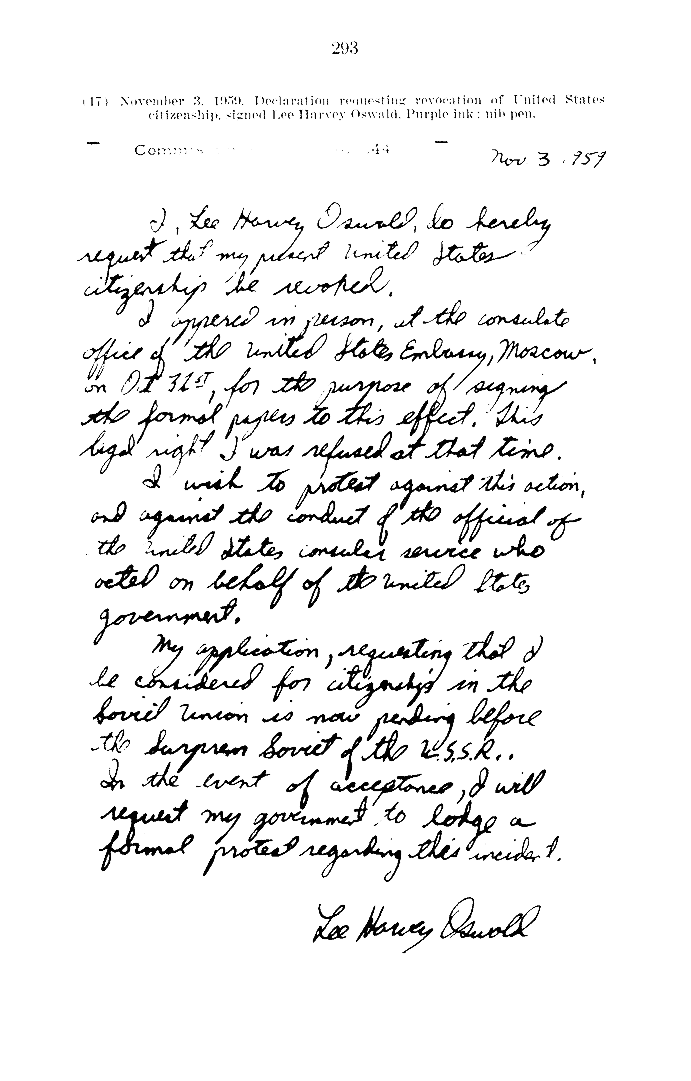 293
(17) November 3, 1959. Declaration requesting revocation of United States
citizenship, signed Lee Harvey Oswald. Purple ink; nib pen.
44
Nov 3 1959
I, Lee Harvey Oswald, do hereby
request that my present United States
citizenship be revoked.
I appered in person, at the consulate
office of the United States Embassy, Moscow,
on Oct 31st, for the purpose of signing
the formal papers to this effect. This
legal right I was refused at that time.
I wish to protest against this action,
and against the conduct of the official of
the United States consular service who
acted on behalf of the United States
government.
My application, requesting that I
be considered for citizenship in the
Soviet Union is now pending before
the Surprem Soviet of the U.S.S.R..
In the event of acceptance, I will
request my government to lodge a
formal protest regarding this incident.
Lee Harvey Oswald